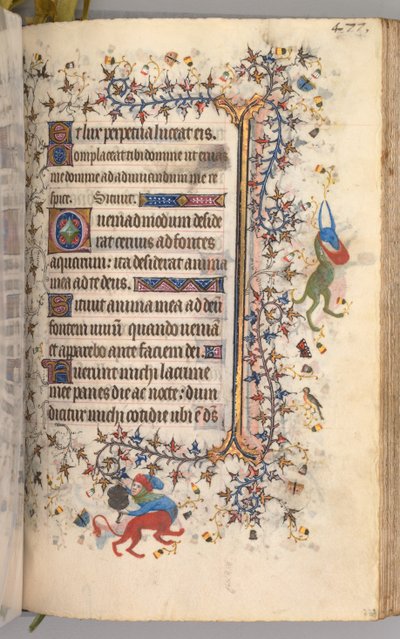 477.
Et lux perpetua luceat eis.
Complaceat tibi domine ut eruas
me domine ad adiuuandum me re
spice. Sicut.
Quemadmodum deside
rat ceruus ad fontes
aquarum: ita desiderat anima
mea ad te deus.
Sitiuit anima mea ad deũ
fontem uiuũ quando ueniã
et apparebo ante faciem dei.
Fuerunt michi lacrime
mee panes die ac nocte: dum
dicitur michi cotidie ubi ẽ ds̃